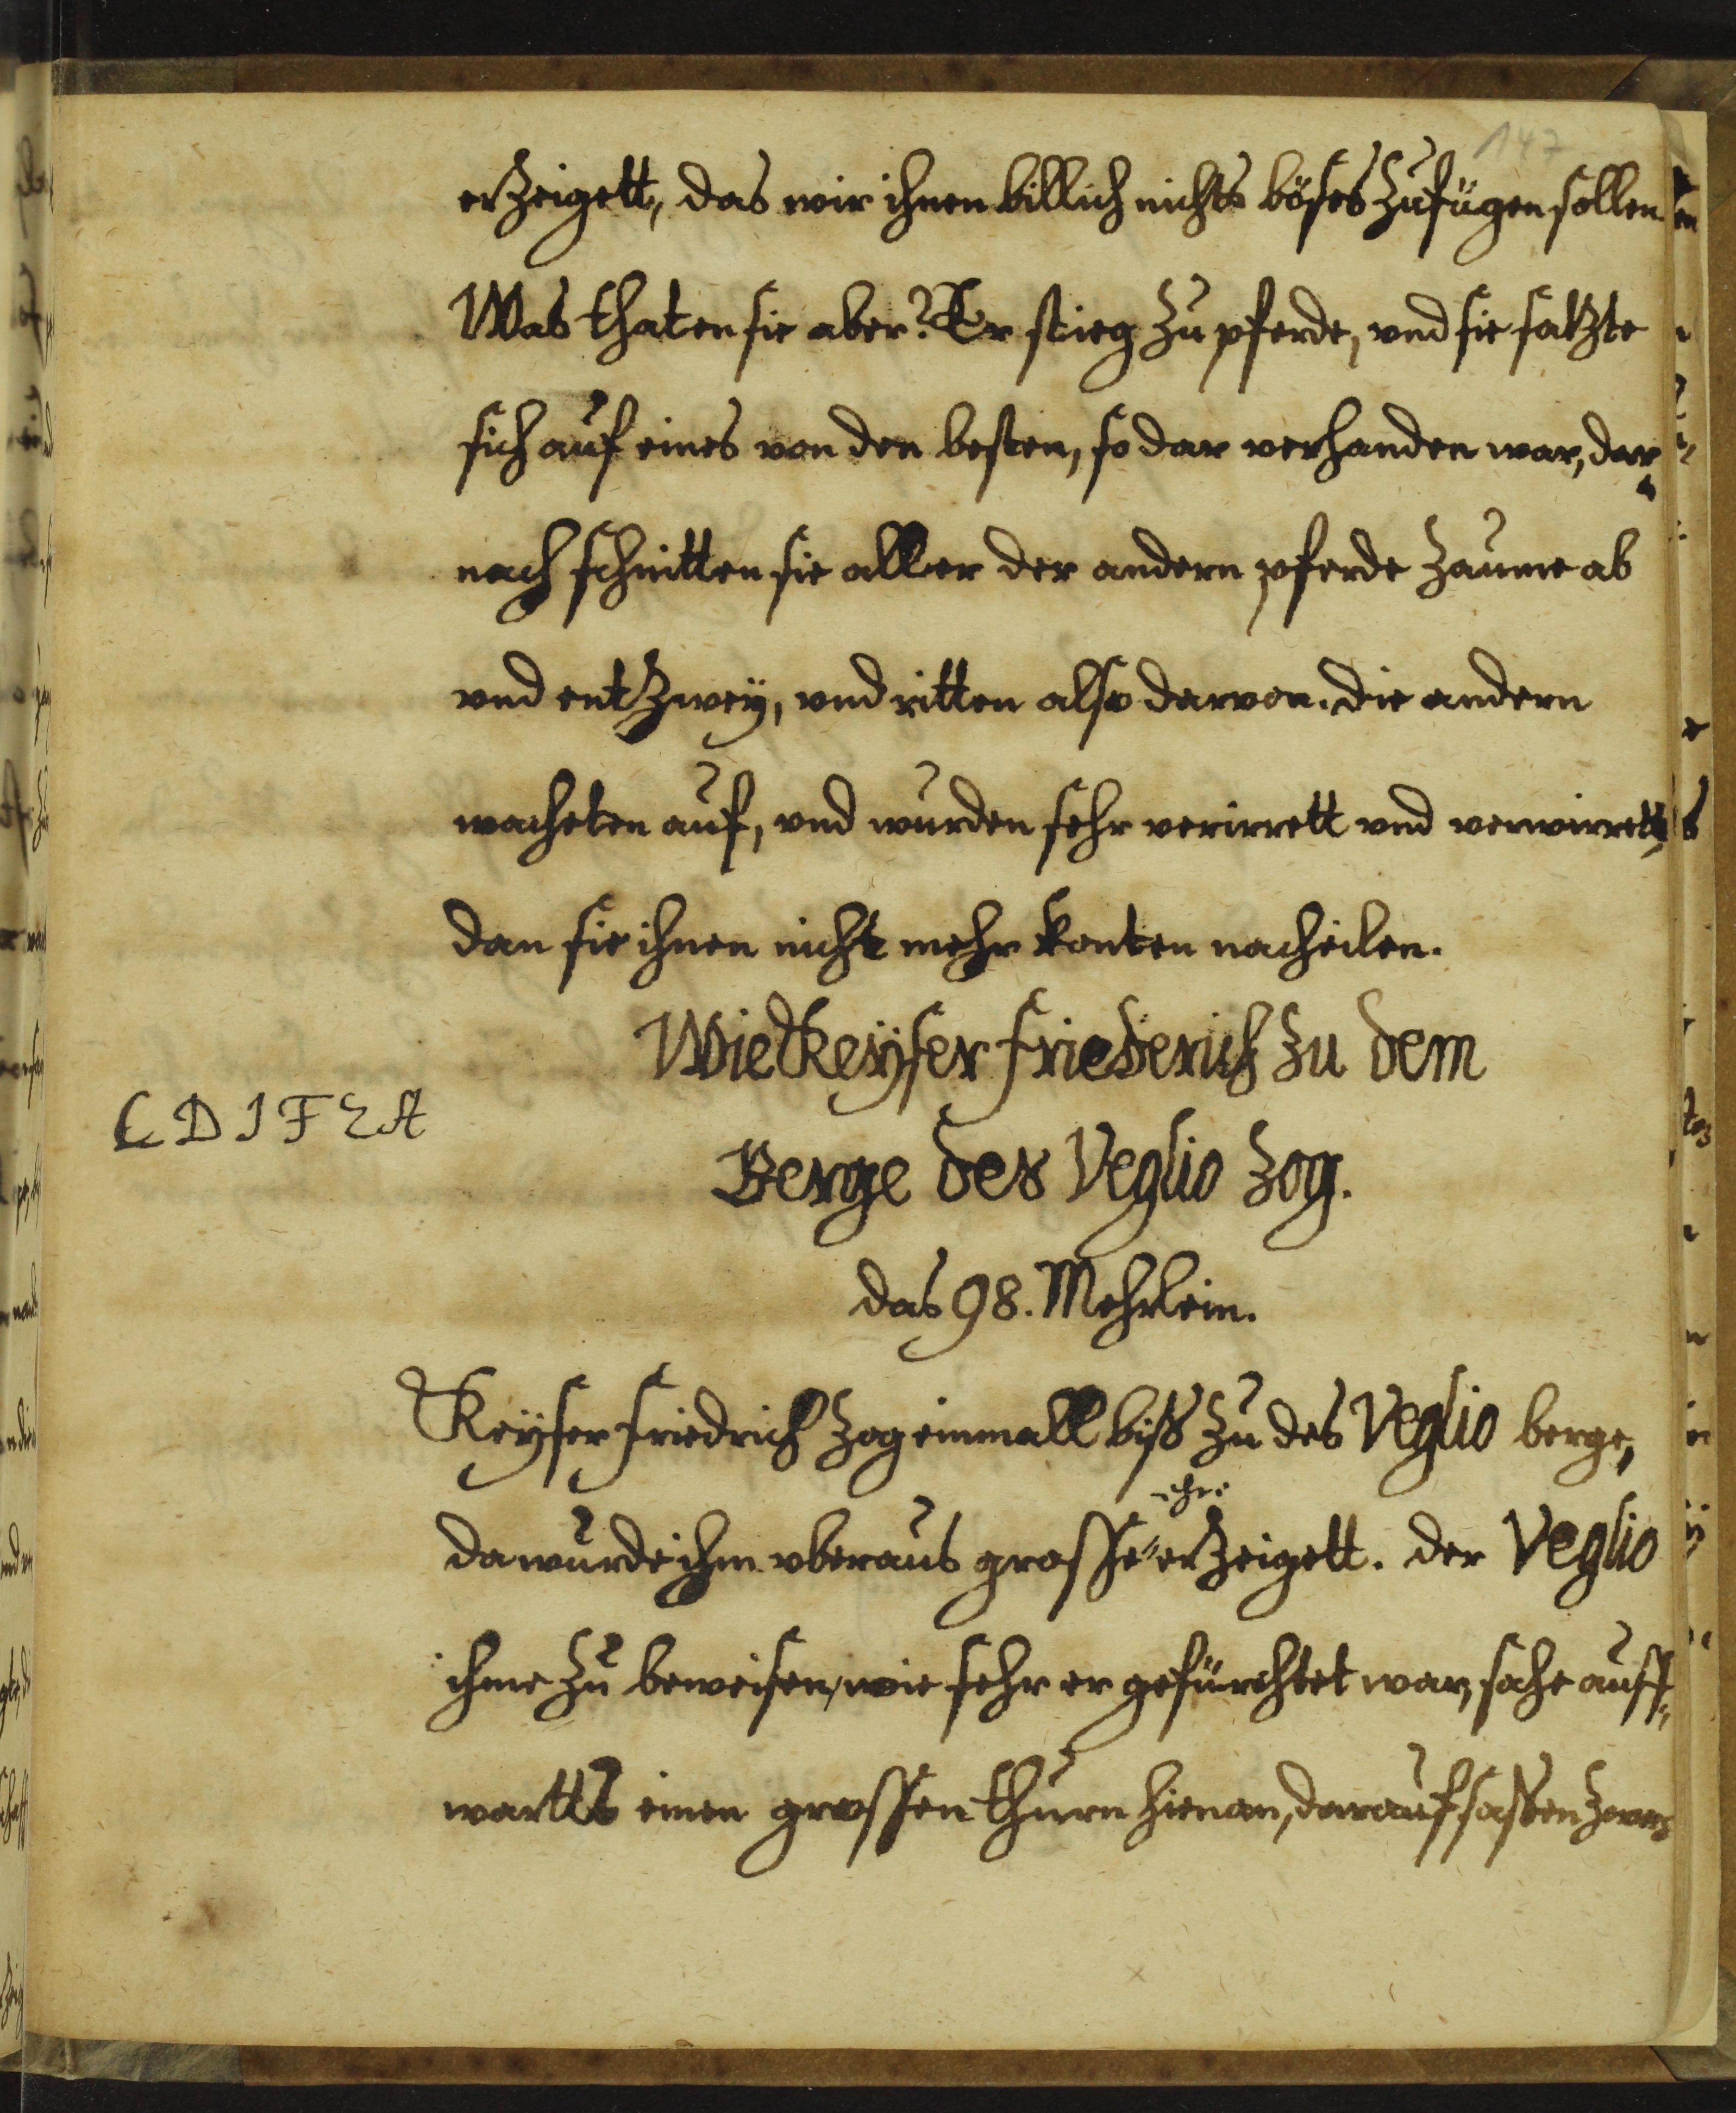 147
erzeigett, das wir ihnen billich nichts böses zufügen sollen
Was thaten sie aber? Er stieg zu pferde, vnd sie satzte
sich auf eines von den besten, so dar verhanden war, dar„
nach schnitten sie aller der andern pferde zaume ab
vnd entzwey, vnd ritten also darvon. die andern
wacheten auf, vnd wurden sehr verirrett vnd verwirrett,
dan sie ihnen nicht mehr konten nacheilen.
Wie Keyser Friederich zu dem
C D I F E A
Berge des Veglio zog.
das 98. Mehrlein.
Keyser Friedrich zog einmall biß zu des Veglio berge,
ehre
da wurde ihm vberaus grosse erzeigett. der Veglio
ihme zu beweisen, wie sehr er gefürchtet war, sahe auff„
wartts einen grossen thurn hienan, darauf sassen zwey